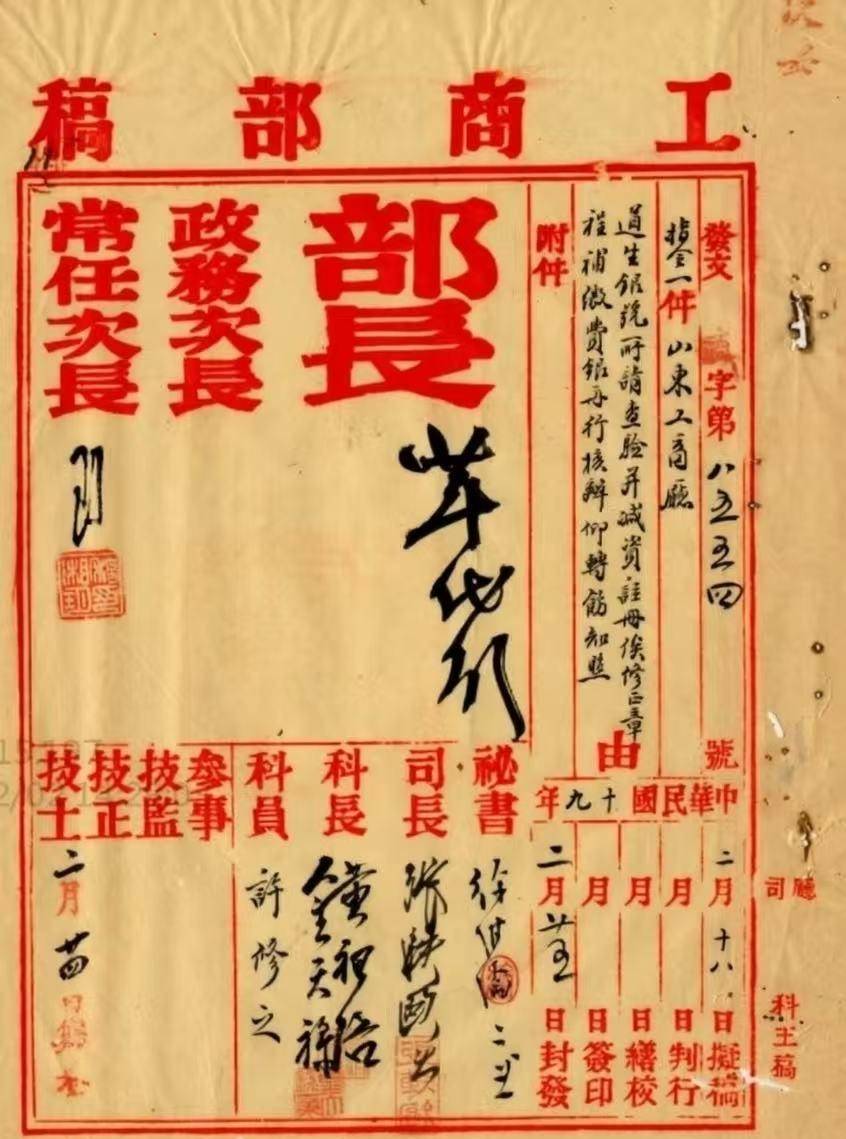 工商部稿
發文 字第八五五四號
指令一件 山東工商廳
道生銀號所請查驗并減資註冊俟修正章
程補繳費銀再行核辦仰轉飭知照
由
附件
部長
代行
政務次長
常任次長
中華民國十九年
二月十八日擬稿
月 日判行
月 日繕校
月 日簽印
二月廿五日封發
祕書
司長
科長
黃祖培
科員
許修之
參事
技監
技正
技士
二月廿四日
廳司
科主稿